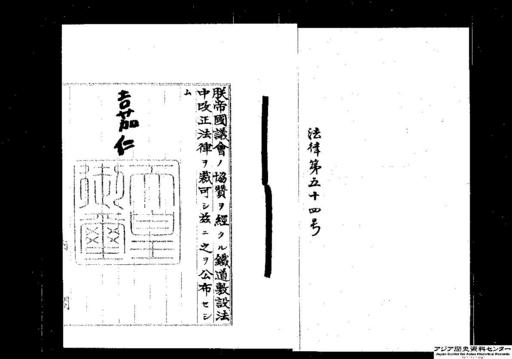 法律第五十四号
朕帝國議會ノ協賛ヲ經タル鐵道敷設法
中改正法律ヲ裁可シ茲ニ之ヲ公布セシ
ム
嘉仁
天皇
御璽
アジア歴史資料センター
Japan Center for Asian Historical Records